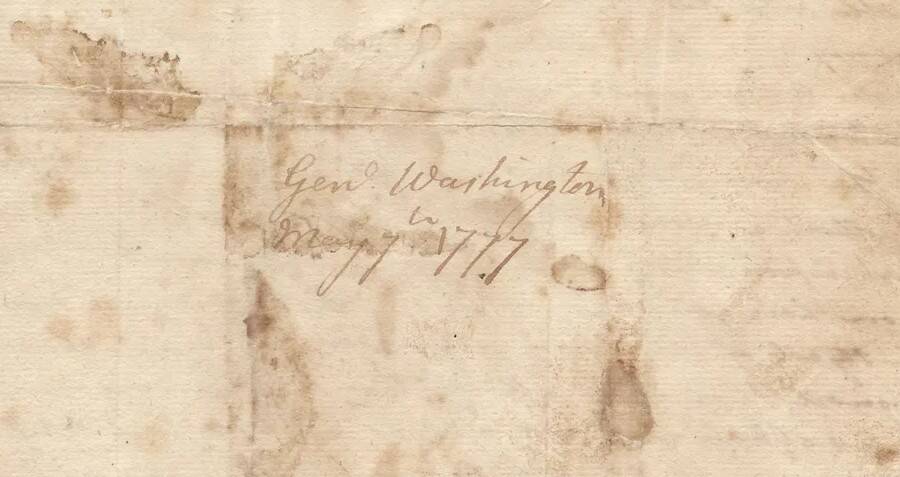 Genl. Washington
May 7th 1777